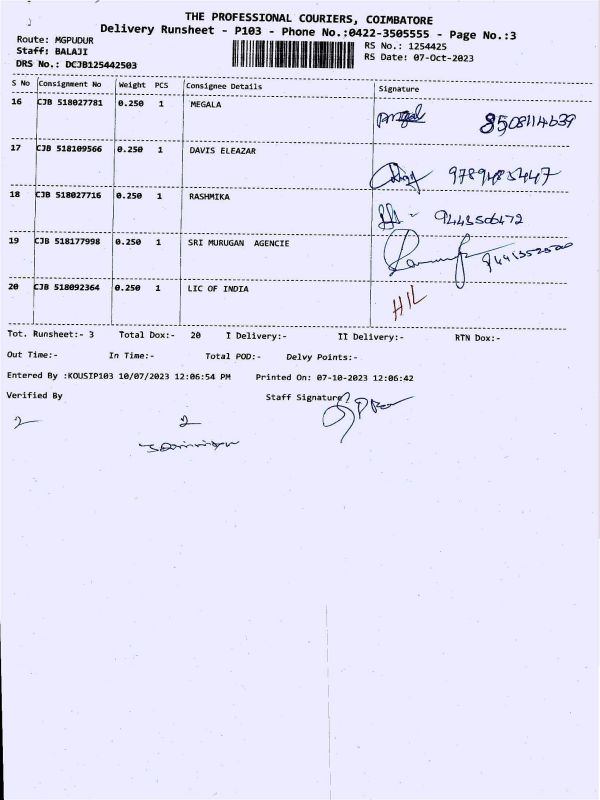 THE PROFESSIONAL COURIERS, COIMBATORE
Delivery Runsheet - P103 - Phone No.:0422-3505555 - Page No.:3
Route: MGPUDUR
RS No.: 1254425
Staff: BALAJI
RS Date: 07-Oct-2023
DRS No.: DCJB125442503
S No Consignment No Weight PCS Consignee Details Signature
16 CJB 518027781 0.250 1 MEGALA
8508114639
17 CJB 518109566 0.250 1 DAVIS ELEAZAR
9789483447
18 CJB 518027716 0.250 1 RASHMIKA
9443506472
19 CJB 518177998 0.250 1 SRI MURUGAN AGENCIE
20 CJB 518092364 0.250 1 LIC OF INDIA
H/L
Tot. Runsheet:- 3 Total Dox:- 20 I Delivery:- II Delivery:- RTN Dox:-
Out Time:- In Time:- Total POD:- Delvy Points:-
Entered By :KOUSIP103 10/07/2023 12:06:54 PM Printed On: 07-10-2023 12:06:42
Verified By Staff Signature
2 2